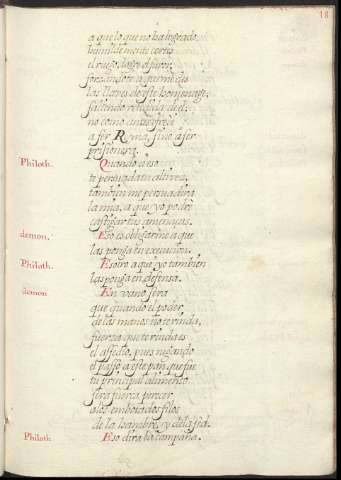 18
a que lo que no ha logrado
humildemente cortes
el ruego, logre el furor,
forzandote a que me des
las llaves de este homenage,
saliendo rendida de el
no como antes ofreci
a ser Reyna, sino a ser
prisionera.
Philoth. Quando a eso
te persuada tu altivez,
tambien me persuadirà
la mia, a que yo podrè
castigar tus amenazas.
demon. Eso es obligarme a que
las ponga en execucion.
Philoth. Esotro a que yo tambien
las ponga en defensa.
demon En vano serà
que quando el poder
de las manos no te rinda,
fuerza que te rinda es
el assedio, pues negando
el passo a este pan que fue
tu principal alimento
serà fuerza perecer
a los embotados filos
de la hambre, y de la sed.
Philoth Eso dirà la campaña.